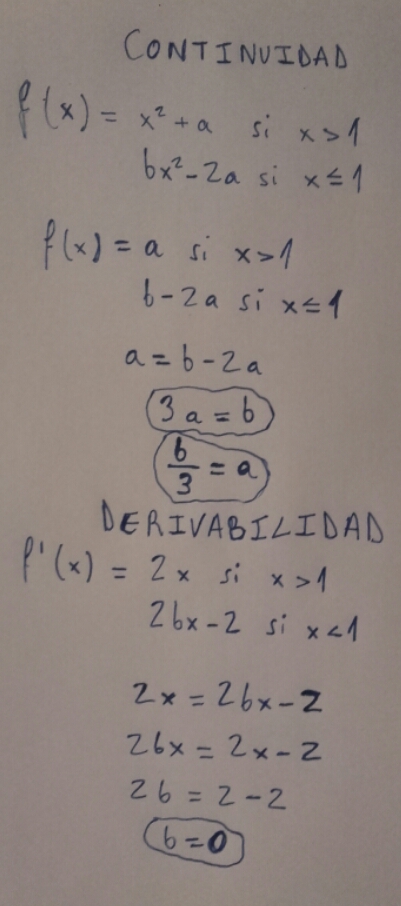 CONTINUIDAD
f(x) = x² + a si x > 1
bx² - 2a si x ≤ 1
f(x) = a si x > 1
b - 2a si x ≤ 1
a = b - 2a
3a = b
b/3 = a
DERIVABILIDAD
f'(x) = 2x si x > 1
2bx - 2 si x < 1
2x = 2bx - 2
2bx = 2x - 2
2b = 2 - 2
b = 0